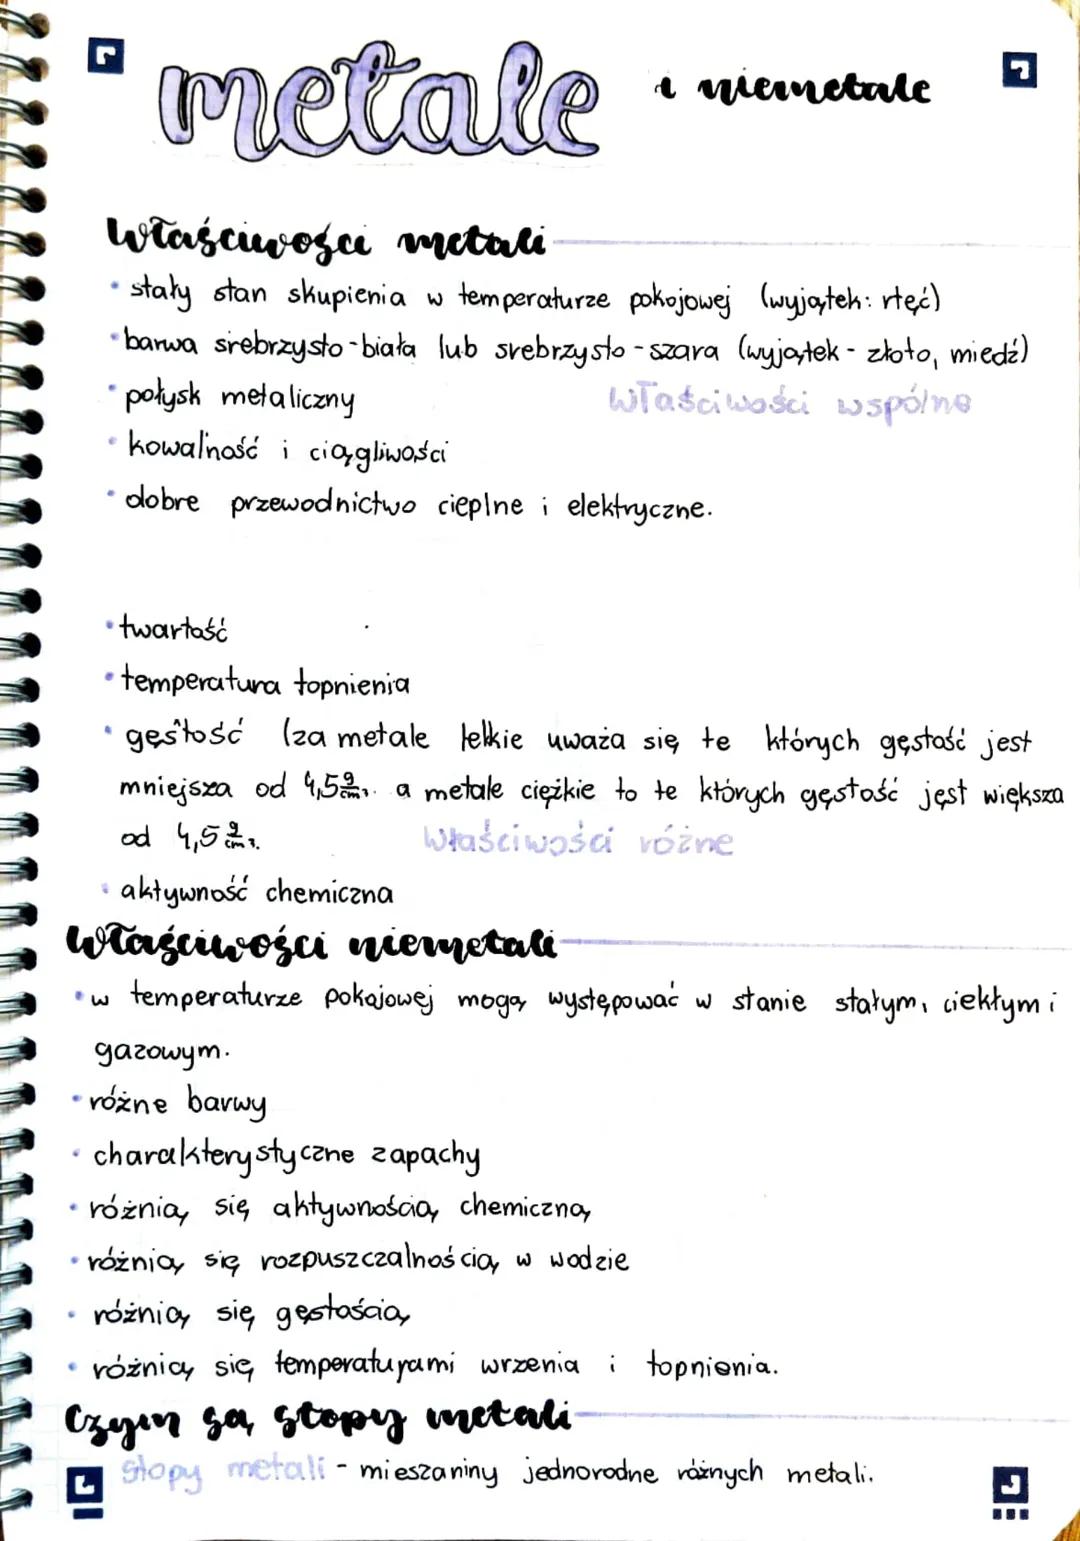 metale i niemetale
Właściwości metali
• stały stan skupienia w temperaturze pokojowej (wyjątek: rtęć)
• barwa srebrzysto-biała lub srebrzysto-szara (wyjątek - złoto, miedź)
• połysk metaliczny
właściwości wspólne
• kowalność i ciągliwości
• dobre przewodnictwo cieplne i elektryczne.
• twartość
• temperatura topnienia
• gęstość (za metale lekkie uważa się te których gęstość jest
mniejsza od 4,5 g/cm³. a metale ciężkie to te których gęstość jest większa
od 4,5 g/cm³.
właściwości różne
• aktywność chemiczna
Właściwości niemetali
• w temperaturze pokojowej mogą występować w stanie stałym, ciekłym i
gazowym.
• różne barwy
• charakterystyczne zapachy
• różnią się aktywnością chemiczną
• różnią się rozpuszczalnością w wodzie
• różnią się gęstością
• różnią się temperaturami wrzenia i topnienia.
Czym są stopy metali
stopy metali - mieszaniny jednorodne różnych metali.